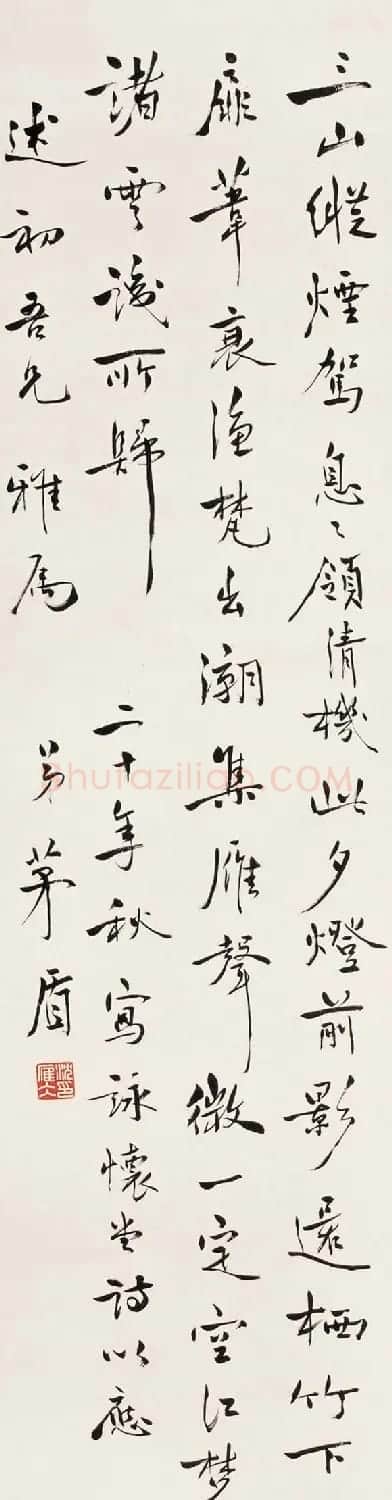 三山縱煙駕息之領清機此夕燈前影還栖竹下
扉葦裏漁梵出潮集雁聲微一定空江夢
諸雲識所歸 二十年秋寫詠懷堂詩以應
述初吾兄雅屬 弟茅盾
沈雁冰印
shufaziliao.COM